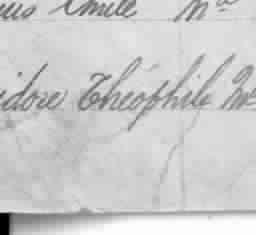 us Emile Ma
idore Théophile Mc